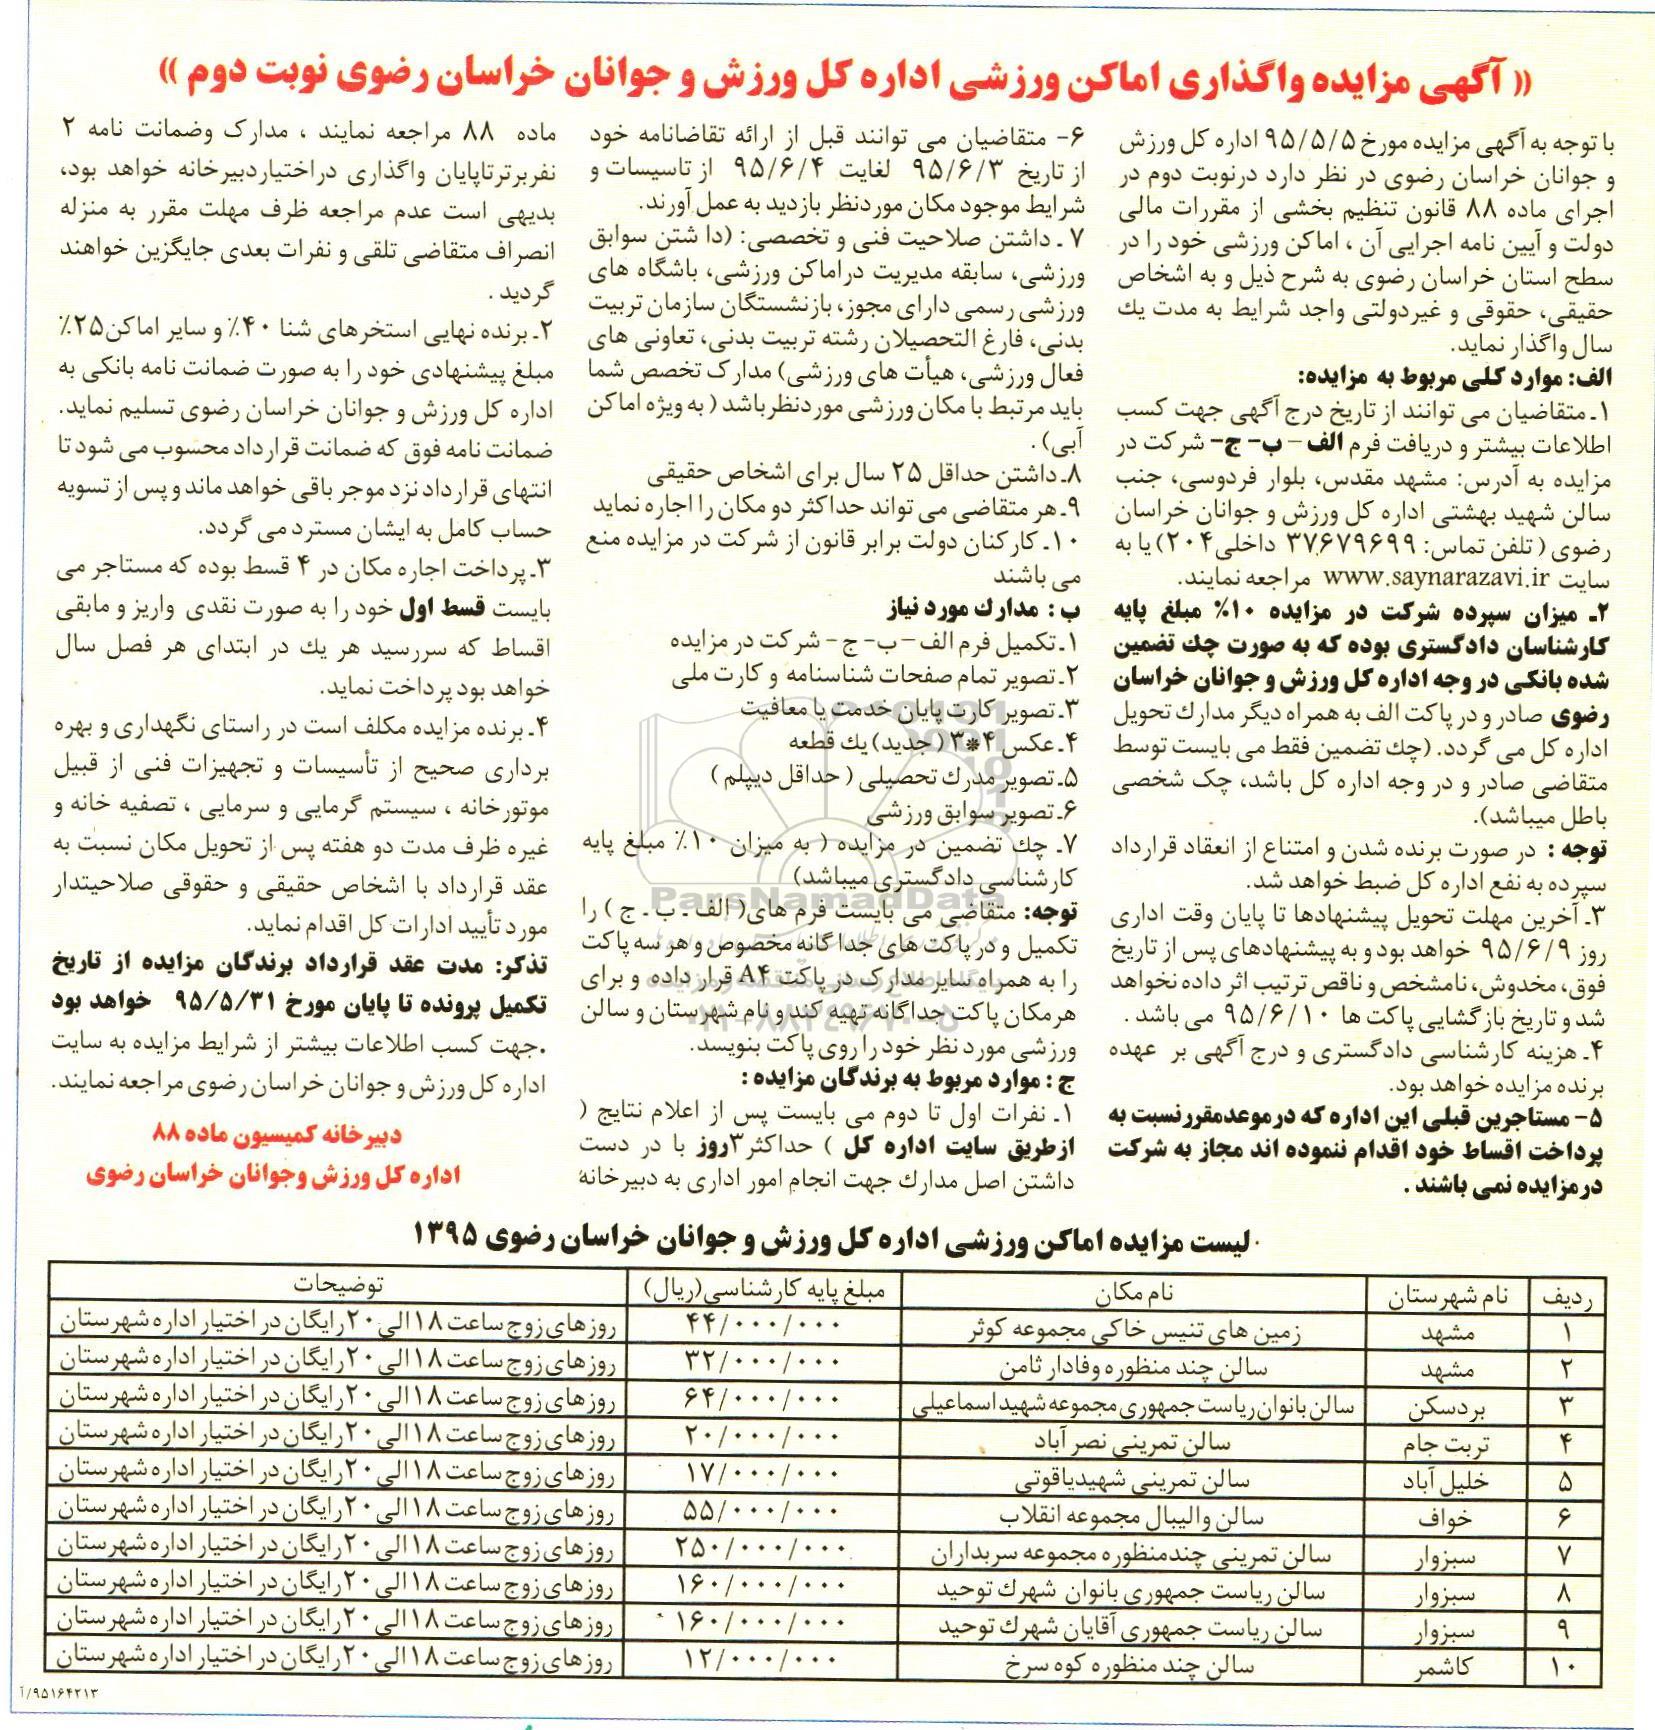 « آگهی مزایده واگذاری اماکن ورزشی اداره کل ورزش و جوانان خراسان رضوی نوبت دوم »
با توجه به آگهی مزایده مورخ ۹۵/۵/۵ اداره کل ورزش
و جوانان خراسان رضوی در نظر دارد درنوبت دوم در
اجرای ماده ۸۸ قانون تنظیم بخشی از مقررات مالی
دولت و آیین نامه اجرایی آن ، اماکن ورزشی خود را در
سطح استان خراسان رضوی به شرح ذیل و به اشخاص
حقیقی، حقوقی و غیردولتی واجد شرایط به مدت یك
سال واگذار نماید.
الف: موارد کلی مربوط به مزایده:
۱ـ متقاضیان می توانند از تاریخ درج آگهی جهت کسب
اطلاعات بیشتر و دریافت فرم الف – ب- ج- شرکت در
مزایده به آدرس: مشهد مقدس، بلوار فردوسی، جنب
سالن شهید بهشتی اداره کل ورزش و جوانان خراسان
رضوی ( تلفن تماس: ۳۷۶۷۹۶۹۹ داخلی ۲۰۴) یا به
سایت www.saynarazavi.ir مراجعه نمایند.
۲ـ میزان سپرده شرکت در مزایده ۱۰٪ مبلغ پایه
کارشناسان دادگستری بوده که به صورت چك تضمین
شده بانکی در وجه اداره کل ورزش و جوانان خراسان
رضوی صادر و در پاکت الف به همراه دیگر مدارك تحویل
اداره کل می گردد. (چك تضمین فقط می بایست توسط
متقاضی صادر و در وجه اداره کل باشد، چک شخصی
باطل میباشد).
توجه : در صورت برنده شدن و امتناع از انعقاد قرارداد
سپرده به نفع اداره کل ضبط خواهد شد.
۳ـ آخرین مهلت تحویل پیشنهادها تا پایان وقت اداری
روز ۹۵/۶/۹ خواهد بود و به پیشنهادهای پس از تاریخ
فوق، مخدوش، نامشخص و ناقص ترتیب اثر داده نخواهد
شد و تاریخ بازگشایی پاکت ها ۹۵/۶/۱۰ می باشد .
۴ـ هزینه کارشناسی دادگستری و درج آگهی بر عهده
برنده مزایده خواهد بود.
۵- مستاجرین قبلی این اداره که درموعدمقررنسبت به
پرداخت اقساط خود اقدام ننموده اند مجاز به شرکت
درمزایده نمی باشند .
۶- متقاضیان می توانند قبل از ارائه تقاضانامه خود
از تاریخ ۹۵/۶/۳ لغایت ۹۵/۶/۴ از تاسیسات و
شرایط موجود مکان موردنظر بازدید به عمل آورند.
۷ ـ داشتن صلاحیت فنی و تخصصی: (دا شتن سوابق
ورزشی، سابقه مدیریت دراماکن ورزشی، باشگاه های
ورزشی رسمی دارای مجوز، بازنشستگان سازمان تربیت
بدنی، فارغ التحصیلان رشته تربیت بدنی، تعاونی های
فعال ورزشی، هیأت های ورزشی) مدارک تخصص شما
باید مرتبط با مکان ورزشی موردنظرباشد ( به ویژه اماکن
آبی) .
۸ـ داشتن حداقل ۲۵ سال برای اشخاص حقیقی
۹ـ هر متقاضی می تواند حداکثر دو مکان را اجاره نماید
۱۰ـ کارکنان دولت برابر قانون از شرکت در مزایده منع
می باشند
ب : مدارك مورد نیاز
۱ـ تکمیل فرم الف – ب- ج - شرکت در مزایده
۲ـ تصویر تمام صفحات شناسنامه و کارت ملی
۳ـ تصویر کارت پایان خدمت یا معافیت
۴ـ عکس ۴*۳ ( جدید) یك قطعه
۵ـ تصویر مدرك تحصیلی ( حداقل دیپلم )
۶ـ تصویر سوابق ورزشی
۷ـ چك تضمین در مزایده ( به میزان ۱۰٪ مبلغ پایه
کارشناسی دادگستری میباشد)
توجه: متقاضی می بایست فرم های( الف ـ ب ـ ج ) را
تکمیل و در پاکت های جدا گانه مخصوص و هر سه پاکت
را به همراه سایر مدارک در پاکت A۴ قرار داده و برای
هرمکان پاکت جداگانه تهیه کند و نام شهرستان و سالن
ورزشی مورد نظر خود را روی پاکت بنویسد.
ج : موارد مربوط به برندگان مزایده :
۱ـ نفرات اول تا دوم می بایست پس از اعلام نتایج (
ازطریق سایت اداره کل ) حداکثر ۳روز با در دست
داشتن اصل مدارك جهت انجام امور اداری به دبیرخانه
ماده ۸۸ مراجعه نمایند ، مدارک وضمانت نامه ۲
نفربرترتاپایان واگذاری دراختیاردبیرخانه خواهد بود،
بدیهی است عدم مراجعه ظرف مهلت مقرر به منزله
انصراف متقاضی تلقی و نفرات بعدی جایگزین خواهند
گردید .
۲ـ برنده نهایی استخرهای شنا ۴۰٪ و سایر اماکن۲۵٪
مبلغ پیشنهادی خود را به صورت ضمانت نامه بانکی به
اداره کل ورزش و جوانان خراسان رضوی تسلیم نماید.
ضمانت نامه فوق که ضمانت قرارداد محسوب می شود تا
انتهای قرارداد نزد موجر باقی خواهد ماند و پس از تسویه
حساب کامل به ایشان مسترد می گردد.
۳ـ پرداخت اجاره مکان در ۴ قسط بوده که مستاجر می
بایست قسط اول خود را به صورت نقدی واریز و مابقی
اقساط که سررسید هر یك در ابتدای هر فصل سال
خواهد بود پرداخت نماید.
۴ـ برنده مزایده مکلف است در راستای نگهداری و بهره
برداری صحیح از تأسیسات و تجهیزات فنی از قبیل
موتورخانه ، سیستم گرمایی و سرمایی ، تصفیه خانه و
غیره ظرف مدت دو هفته پس از تحویل مکان نسبت به
عقد قرارداد با اشخاص حقیقی و حقوقی صلاحیتدار
مورد تأیید ادارات کل اقدام نماید.
تذکر: مدت عقد قرارداد برندگان مزایده از تاریخ
تکمیل پرونده تا پایان مورخ ۹۵/۵/۳۱ خواهد بود
.جهت کسب اطلاعات بیشتر از شرایط مزایده به سایت
اداره کل ورزش و جوانان خراسان رضوی مراجعه نمایند.
دبیرخانه کمیسیون ماده ۸۸
اداره کل ورزش وجوانان خراسان رضوی
ParsNamadData
۰۲۱-۸۸۳۴۹۶۷۰-۵
لیست مزایده اماکن ورزشی اداره کل ورزش و جوانان خراسان رضوی ۱۳۹۵
ردیف نام شهرستان نام مکان مبلغ پایه کارشناسی(ریال) توضیحات
۱ مشهد زمین های تنیس خاکی مجموعه کوثر ۴۴/۰۰۰/۰۰۰ روزهای زوج ساعت ۱۸الی۲۰رایگان در اختیار اداره شهرستان
۲ مشهد سالن چند منظوره وفادار ثامن ۳۲/۰۰۰/۰۰۰ روزهای زوج ساعت ۱۸الی۲۰رایگان در اختیار اداره شهرستان
۳ بردسکن سالن بانوان ریاست جمهوری مجموعه شهید اسماعیلی ۶۴/۰۰۰/۰۰۰ روزهای زوج ساعت ۱۸الی۲۰رایگان در اختیار اداره شهرستان
۴ تربت جام سالن تمرینی نصر آباد ۲۰/۰۰۰/۰۰۰ روزهای زوج ساعت ۱۸الی۲۰رایگان در اختیار اداره شهرستان
۵ خلیل آباد سالن تمرینی شهیدیاقوتی ۱۷/۰۰۰/۰۰۰ روزهای زوج ساعت ۱۸الی۲۰رایگان در اختیار اداره شهرستان
۶ خواف سالن والیبال مجموعه انقلاب ۵۵/۰۰۰/۰۰۰ روزهای زوج ساعت ۱۸الی۲۰رایگان در اختیار اداره شهرستان
۷ سبزوار سالن تمرینی چندمنظوره مجموعه سربداران ۲۵۰/۰۰۰/۰۰۰ روزهای زوج ساعت ۱۸الی۲۰رایگان در اختیار اداره شهرستان
۸ سبزوار سالن ریاست جمهوری بانوان شهرك توحید ۱۶۰/۰۰۰/۰۰۰ روزهای زوج ساعت ۱۸الی۲۰رایگان در اختیار اداره شهرستان
۹ سبزوار سالن ریاست جمهوری آقایان شهرك توحید ۱۶۰/۰۰۰/۰۰۰ روزهای زوج ساعت ۱۸الی۲۰رایگان در اختیار اداره شهرستان
۱۰ کاشمر سالن چند منظوره کوه سرخ ۱۲/۰۰۰/۰۰۰ روزهای زوج ساعت ۱۸الی۲۰رایگان در اختیار اداره شهرستان
۹۵۱۶۴۲۱۳/آ